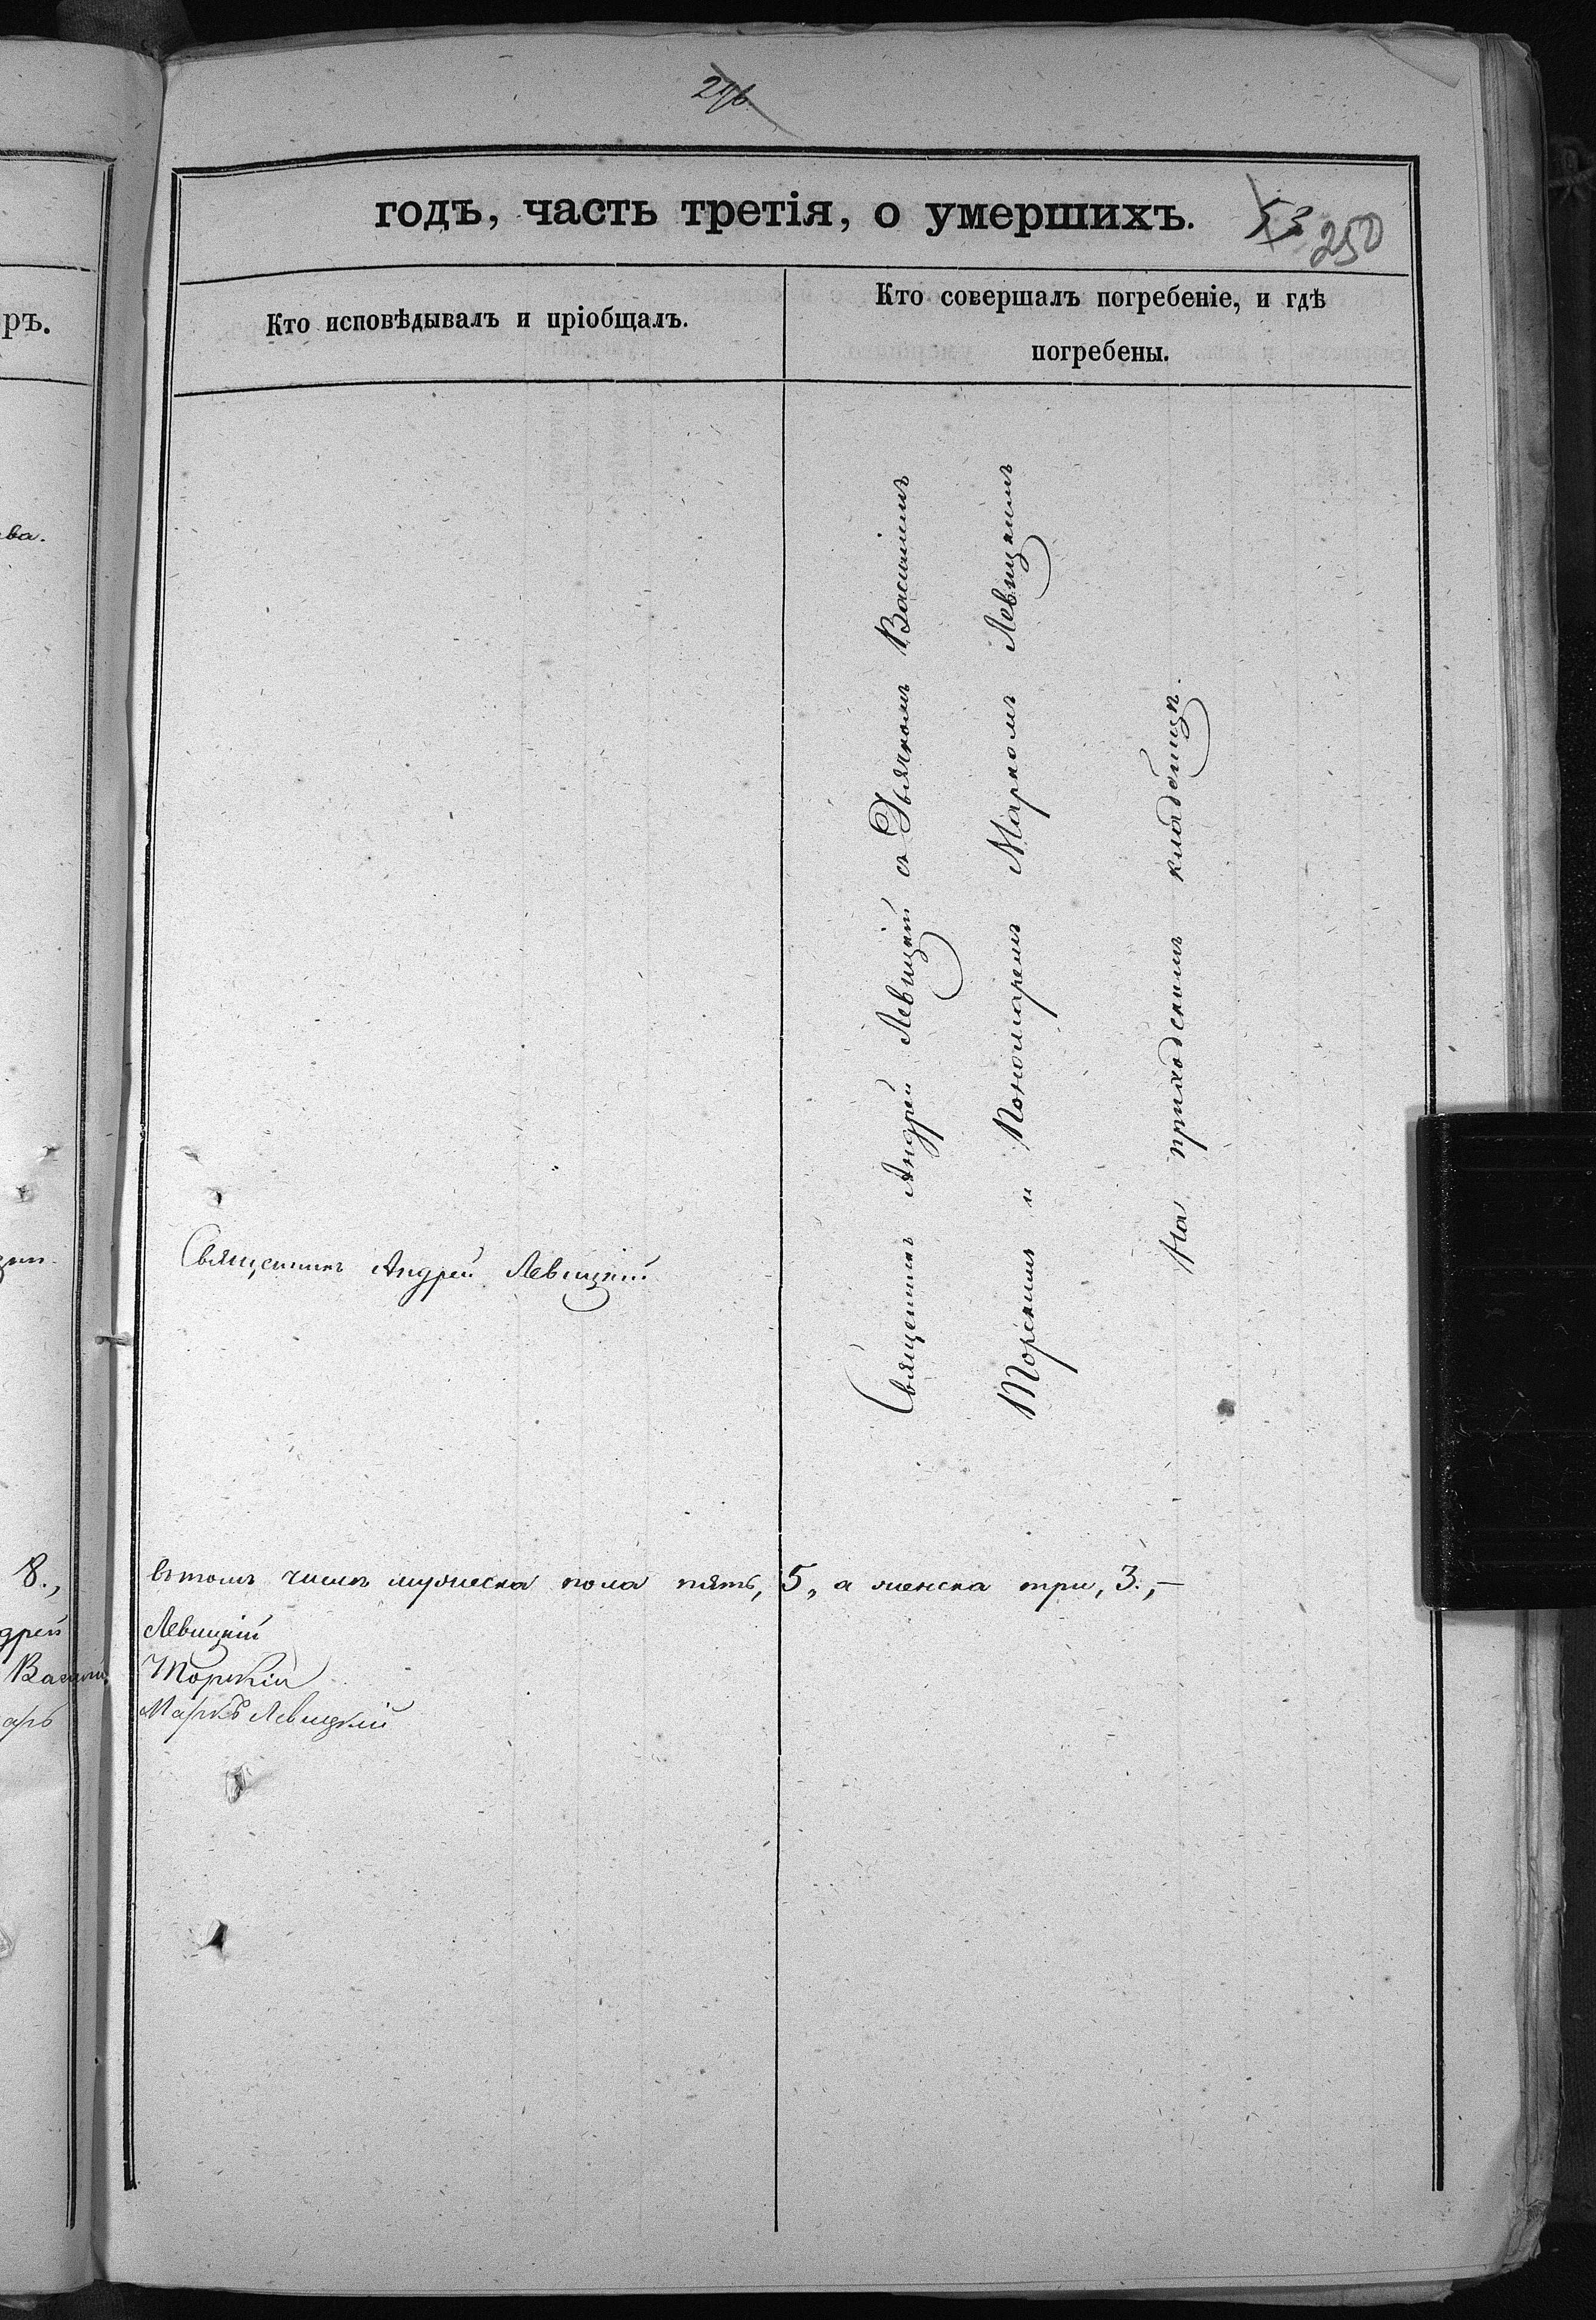 296
годъ, часть третія, о умершихъ. 53 250
Кто исповѣдывалъ и пріобщалъ.
Кто совершалъ погребеніе, и гдѣ
погребены.
ръ.
ва.
Священникъ Андрей Левицкій
Священникъ Андрей Левицкій съ Дьячкомъ Василіемъ
Торскимъ и Пономаремъ Маркомъ Левицкимъ
На приходскомъ кладбищѣ.
8., въ томъ числѣ мужеска пола пять, 5, а женска три, 3.,—
дрей Левицкій
Василій Торскій
арь Маркъ Левицкій